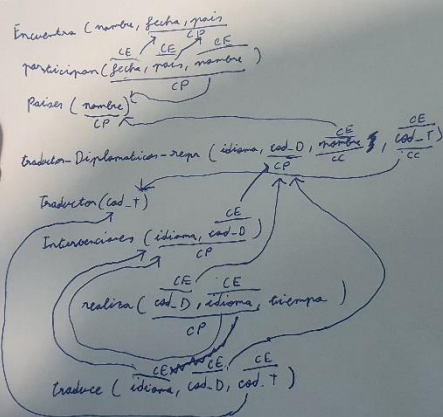 Encuentra (nombre, fecha, pais
CP
CE CE CE
participan (fecha, pais, nombre)
CP
Paises (nombre)
CP
CE CE
traductor-Diplomaticos-repr (idioma, cod_D, nombre, cod_T)
CP CC CC
Traductor (cod_T)
CE
Intervenciones (idioma, cod_D)
CP
CE CE
realiza (cod_D, idioma, tiempo)
CP
CE CE CE
traduce (idioma, cod_D, cod_T)